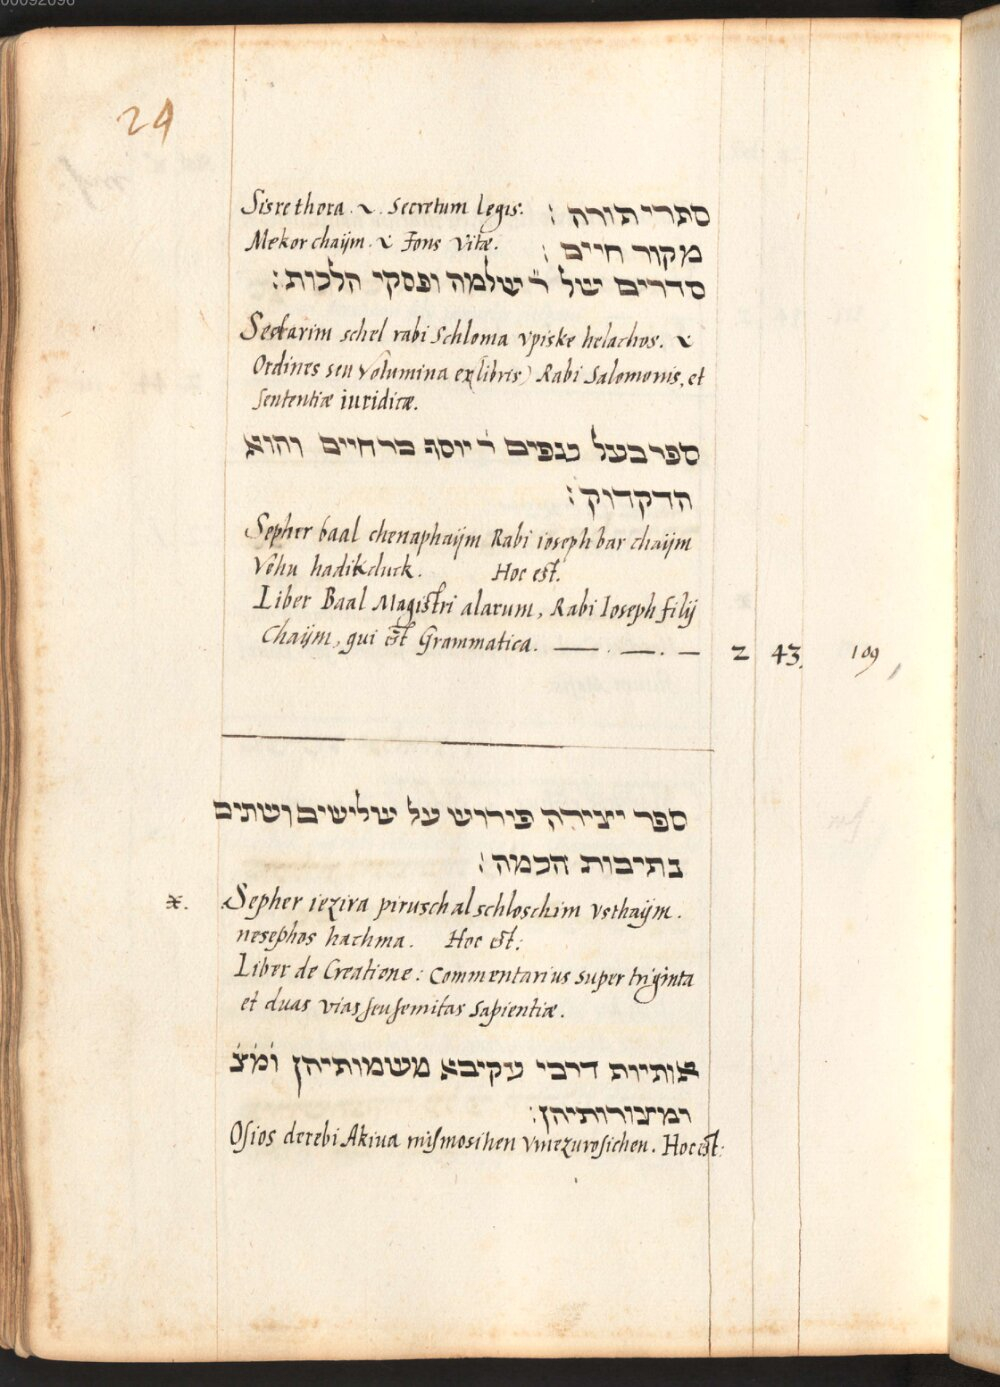 24
Sisrethora. Secretum legis. סתרי תורה :
Mekor chaijm. Fons Vitæ. מקור חיים :
סדרים של ר' שלמה ופסקי הלכות :
Sedarim schel rabi Schloma vpiske helachos.
Ordines seu Volumina ex libris) Rabi Salomonis, et
Sententiæ iuridicæ.
ספר בעל כנפים ר' יוסף בר חיים והוא
הדקדוק :
Sepher baal chenaphaijm Rabi ioseph bar chaijm
Vehu hadikduck. Hoc est.
Liber Baal Magistri alarum, Rabi Ioseph filij
Chaijm, qui est Grammatica. — . — . — 2 43. 109
ספר יצירה פירוש על שלישים ושתים
נתיבות הכמה :
x. Sepher iezira pirusch al schloschim vsthaijm.
nesephos hachma. Hoc est:
Liber de Creatione: Commentarius super triginta
et duas vias seu semitas Sapientiæ.
אותיות דרבי עקיבא משמותיהן ומצ
ומצורותיהן :
Osios derebi Akiua mismosihen vmezurosichen. Hoc est: